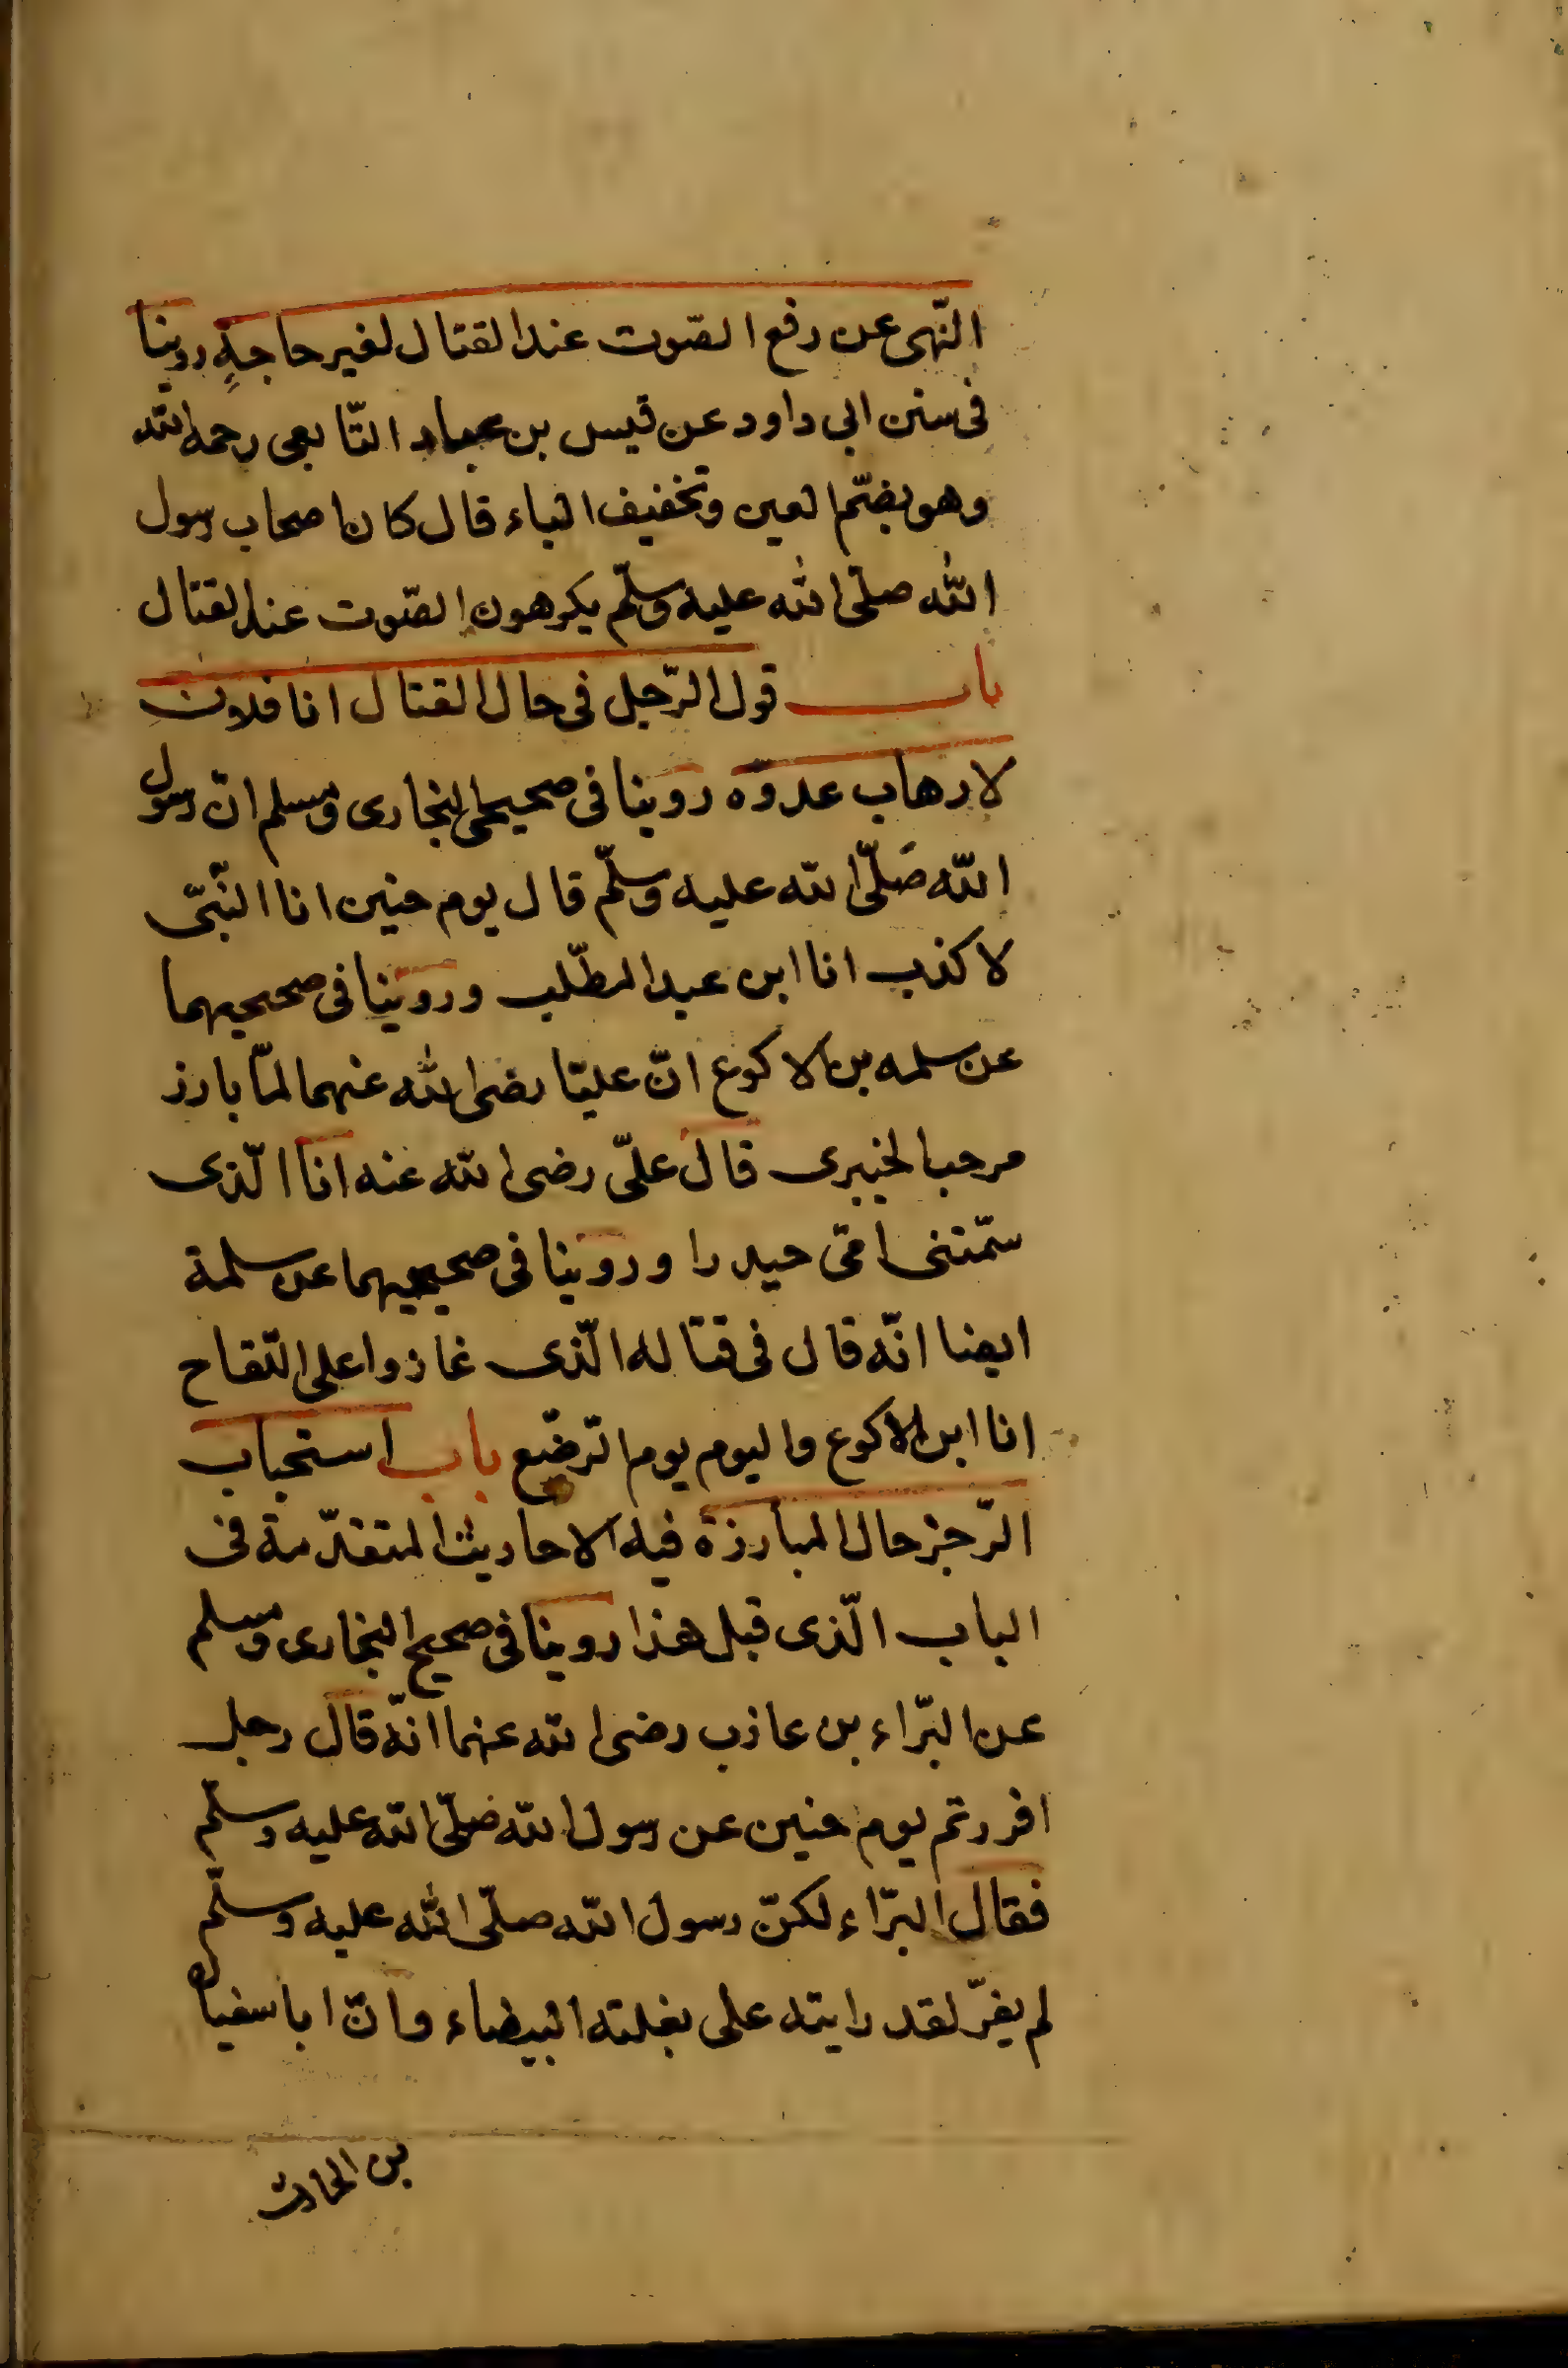 النّهى عن رفع الصّوت عند القتال لغير حاجةٍ روينا
فى سنن ابى داود عن قيس بن عباد التّابعى رحمه الله
وهو بضمّ العين وتخفيف الباء قال كان اصحاب رسول
الله صلّى الله عليه وسلّم يكرهون الصّوت عند القتال
باب قول الرّجل فى حال القتال انا فلان
لارهاب عدوّه روينا فى صحيحى البخارى ومسلم انّ رسول
الله صَلّى الله عليه وسلّم قال يوم حنين انا النّبىّ
لا كذب انا ابن عبد المطّلب وروينا فى صحيحيهما
عن سلمه بن الاكوع انّ عليّا رضى الله عنهما لمّا بارز
مرحبا الخيبرى قال علىّ رضى الله عنه انا الّذى
سمّتنى امّى حيدرا وروينا فى صحيحيهما عن سلمة
ايضا انّه قال فى قتاله الّذى غاروا على اللّقاح
انا ابن الاكوع واليوم يوم الرّضّع باب استحباب
الرّجز حال المبارزة فيه الاحاديث المتقدّمة فى
الباب الّذى قبل هذا روينا فى صحيح البخارى ومسلم
عن البرّاء بن عازب رضى الله عنهما انّه قال رجل
افررتم يوم حنين عن رسول الله صَلّى الله عليه وسلّم
فقال البرّاء لكنّ رسول الله صلّى الله عليه وسلّم
لم يفرّ لقد رايته على بغلته البيضاء وانّ ابا سفيان
بن الحارث